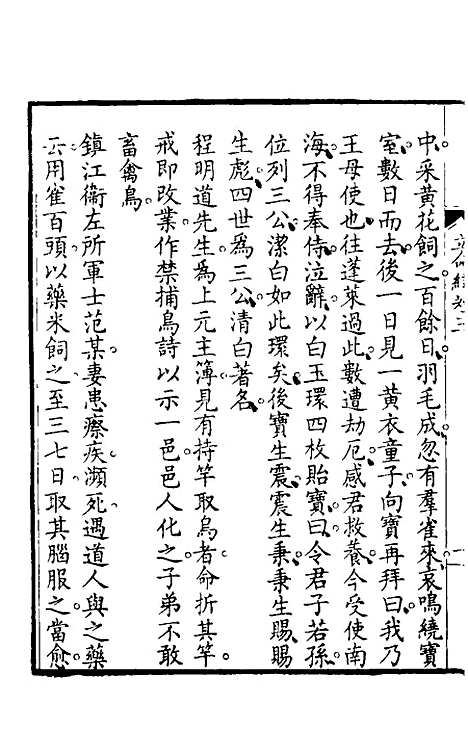 中采黃花飼之百餘日羽毛成忽有羣雀來哀鳴繞寶
室數日而去後一日見一黃衣童子向寶再拜曰我乃
王母使也往蓬萊過此數遭劫厄感君救養今受使南
海不得奉侍泣辭以白玉環四枚貽寶曰令君子若孫
位列三公潔白如此環矣後寶生震震生秉秉生賜賜
生彪四世爲三公清白著名
程明道先生爲上元主簿見有持竿取鳥者命折其竿
戒即改業作禁捕鳥詩以示一邑邑人化之子弟不敢
畜禽鳥
鎮江衞左所軍士范某妻患瘵疾瀕死遇道人與之藥
云用雀百頭以藥米飼之至三七日取其腦服之當愈